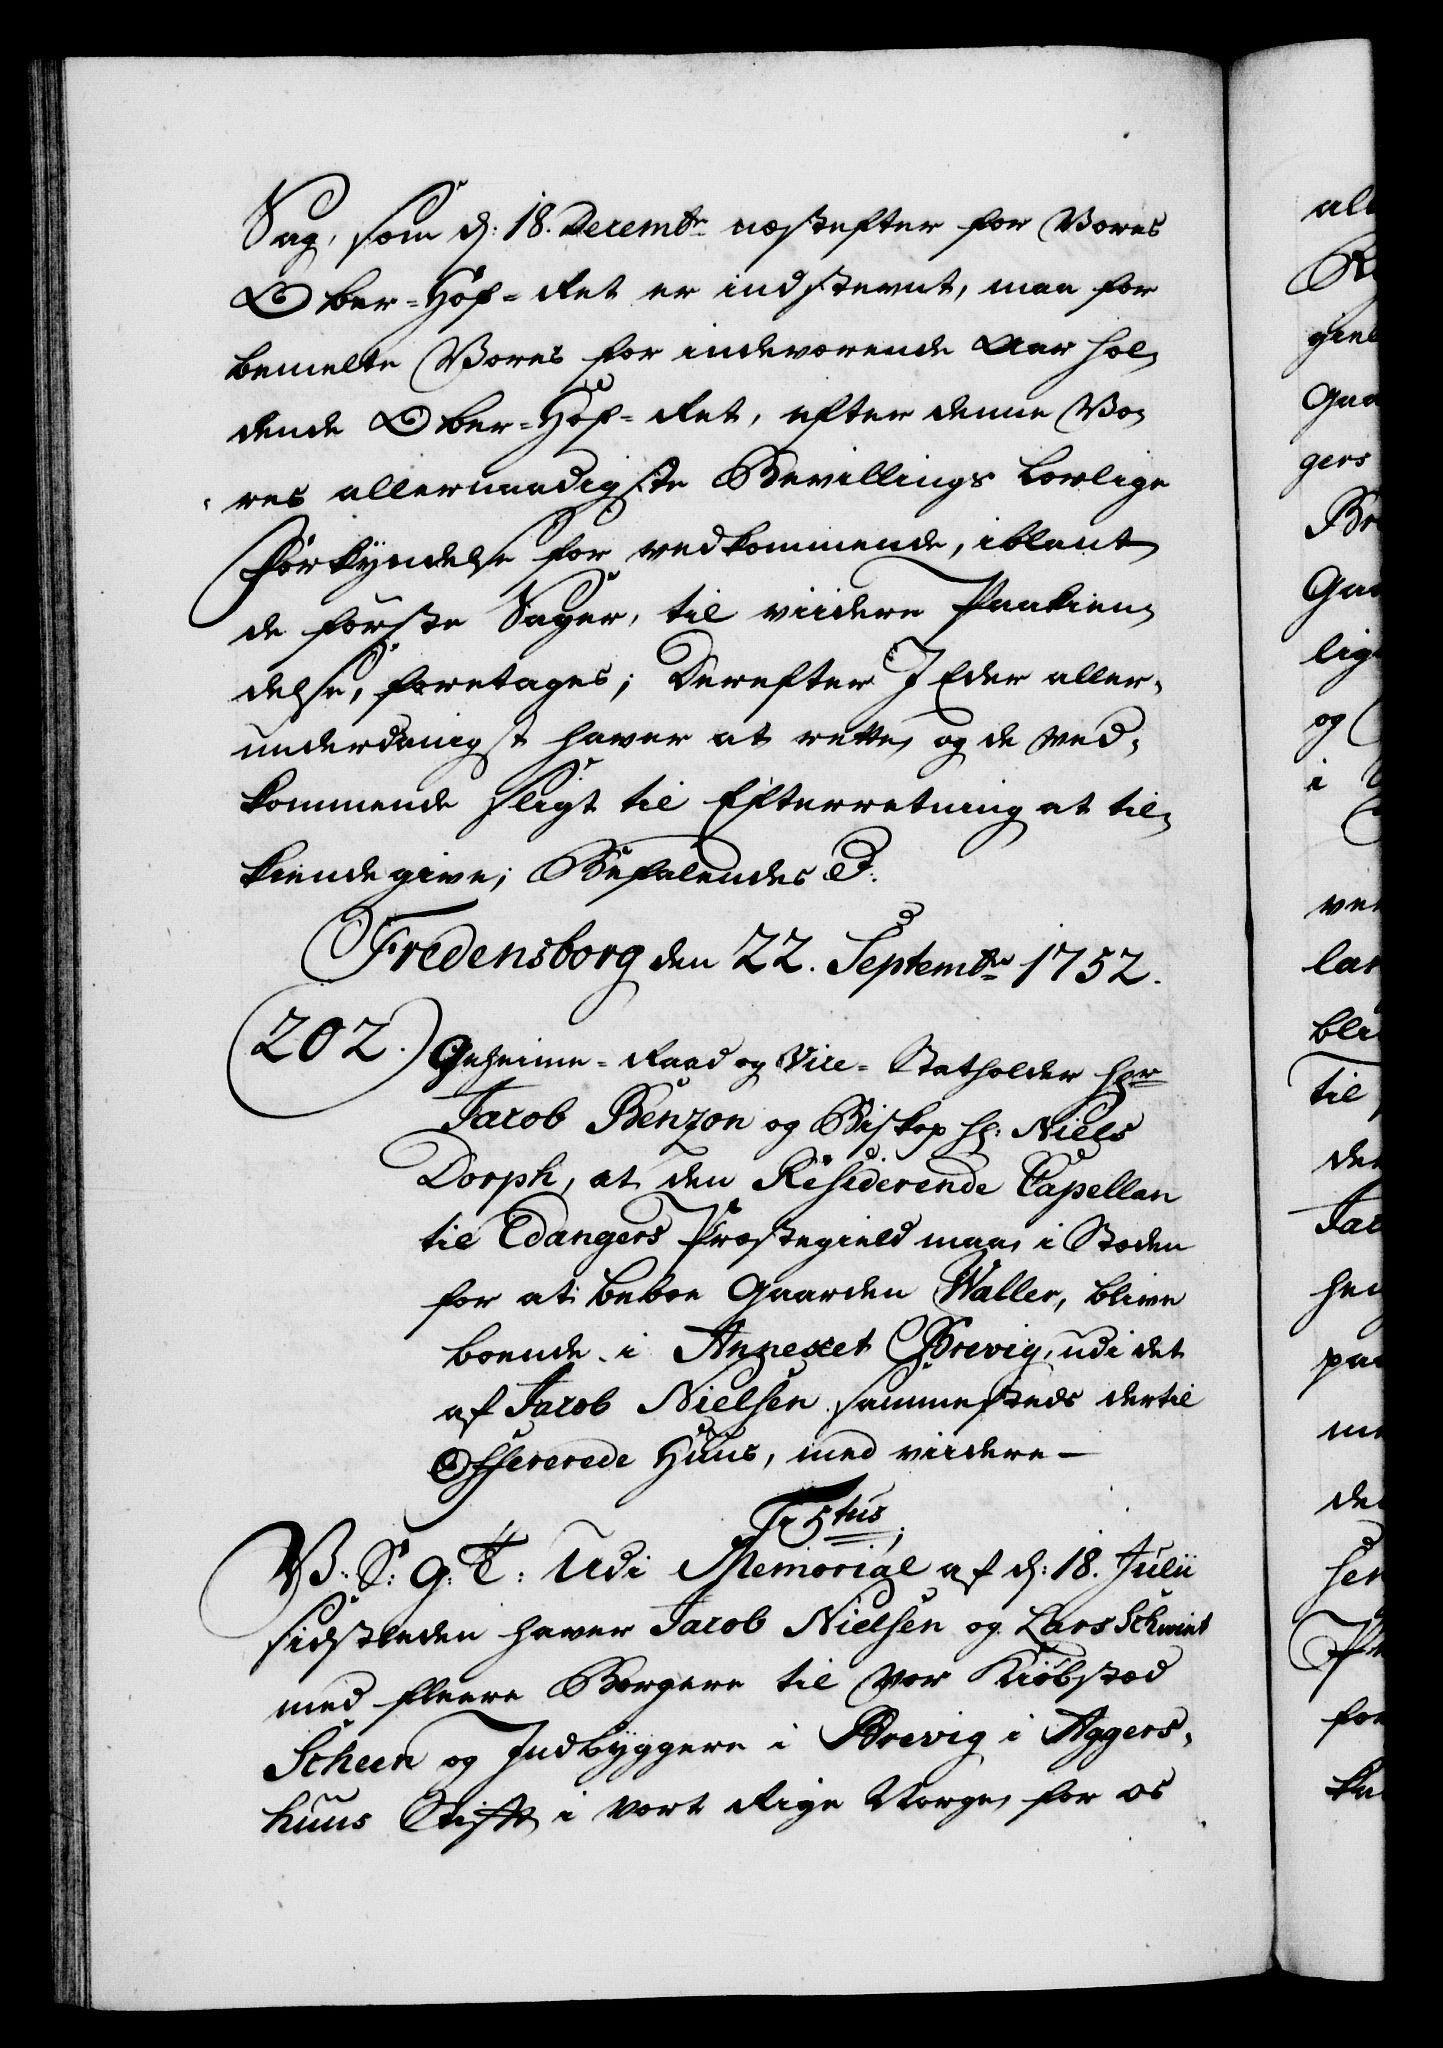 Sag, som d: 18. Decembr næstefter for Vores
Ober-Hof-Ret er indstevnt, maa for
bemelte Vores for indeværende Aar hol„
dende Ober-Hof-Ret, efter denne Vo„
res allernaadigste Bevillings lovlige
Forkyndelse for vedkommende, iblant
de første Sager, til viidere Paakien„
delse, foretages; Derefter I Eder aller„
underdanigst haver at rette, og de ved„
kommende sligt til Efterretning at til„
kiendegive; Befalendes &.
Fredensborg den 22. Septembr 1752.
202. Geheime-Raad og Vice-Statholder Hr
Jacob Benzon og Biskop Hr: Niels
Dorph, at den Residerende Capellan
til Edangers Præstegield maa, i Stæden
for at beboe Gaarden Waller, blive
boende i Annexet Brevig, udi det
af Jacob Nielsen sammesteds dertil
Offererede Huus, med viidere —
Fr 5tus,
V: S: G: T: Udi Memorial af d: 18. Julii
sidstleden haver Jacob Nielsen og Lars Schmidt
med fleere Borgere til vor Kiøbstæd
Scheen og Indbyggere i Brevig i Aggers„
huus Stift i vort Rige Norge, for os
all
giel
Gaa
gers
Gaa
lig
og
i
ved
lat
bli
til
den
Jac
hen
paa
me
de
for